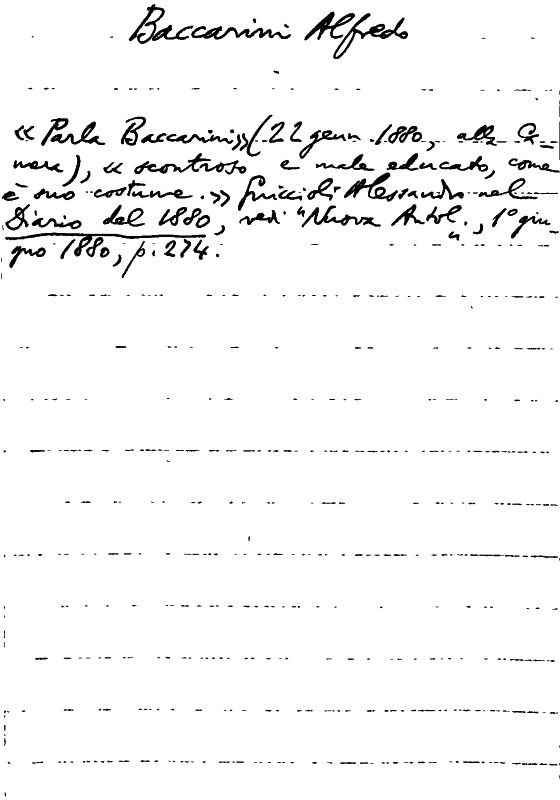 Baccarini Alfredo
« Parla Baccarini» (22 genn. 1880, alla Ca-
mera), « scontroso e male educato, come
è suo costume.» Guiccioli Alessandro nel
Diario del 1880, ved. "Nuova Antol.", 1° giu-
gno 1880, p. 274.